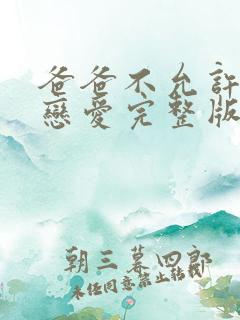 爸爸不允許
戀愛完整版
朝三暮四郎
未任同意禁止轉載